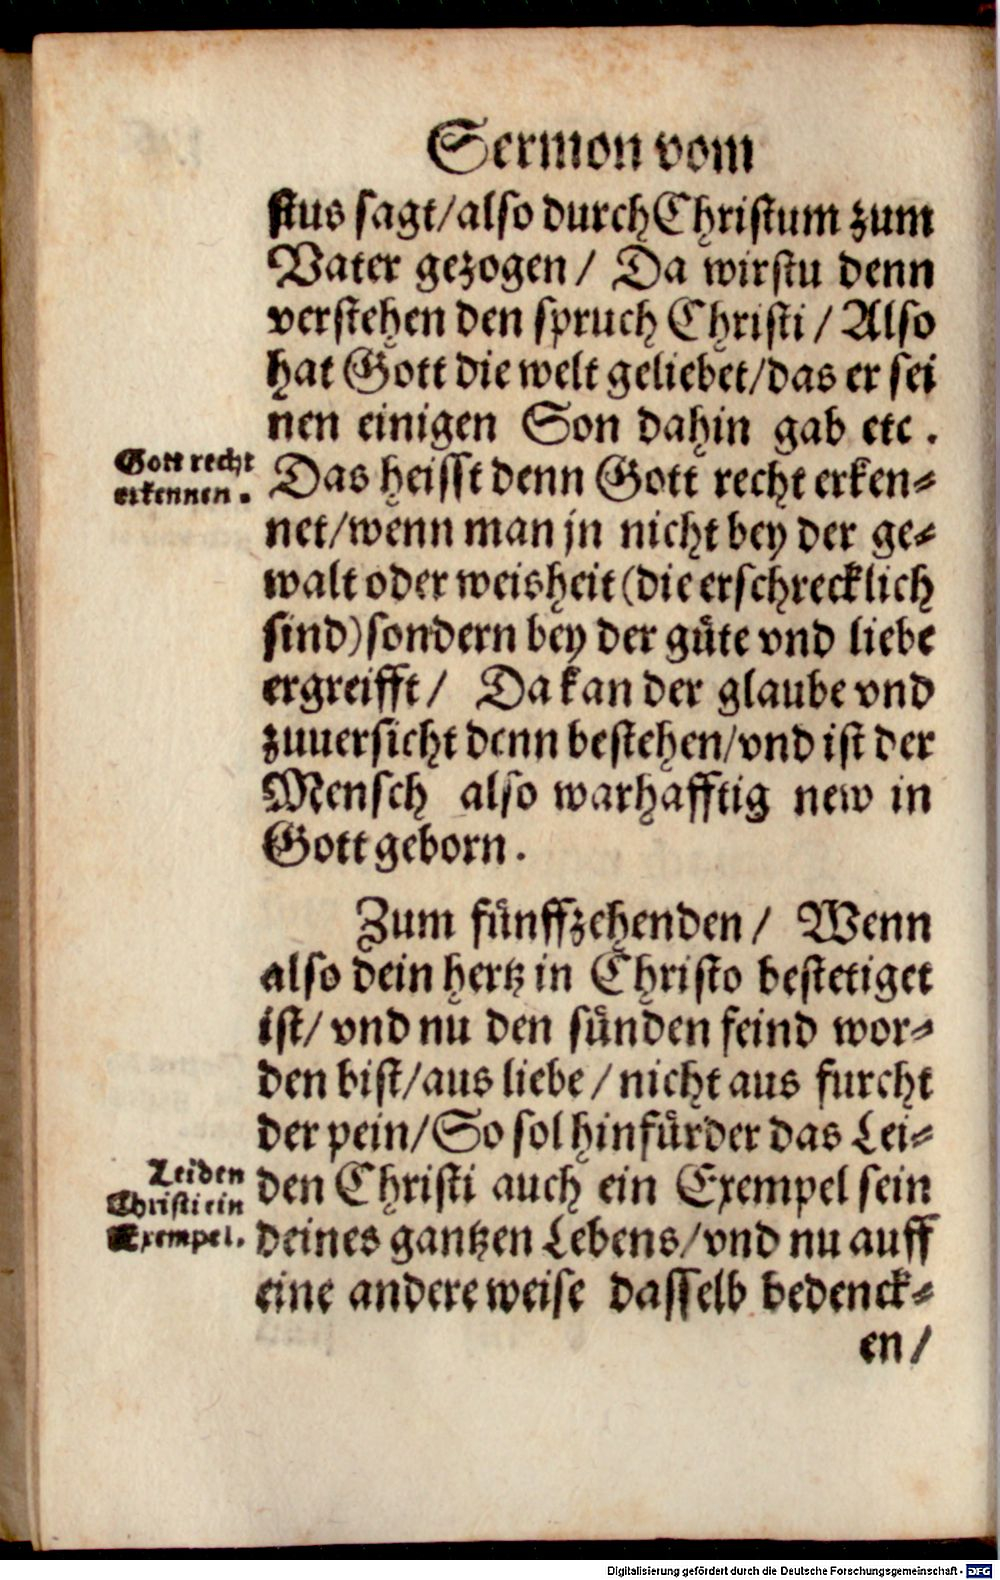 Sermon vom
stus sagt/also durch Christum zum
Vater gezogen/ Da wirstu denn
verstehen den spruch Christi/ Also
hat Gott die welt geliebet/das er sei
nen einigen Son dahin gab etc.
Gott recht
erkennen.
Das heisst denn Gott recht erken-
net/wenn man jn nicht bey der ge-
walt oder weisheit (die erschrecklich
sind) sondern bey der güte vnd liebe
ergreifft/ Da kan der glaube vnd
zuuersicht denn bestehen/vnd ist der
Mensch also warhafftig new in
Gott geborn.
Zum fünffzehenden/ Wenn
also dein hertz in Christo bestetiget
ist/ vnd nu den sünden feind wor-
den bist/aus liebe/nicht aus furcht
der pein/So sol hinfürder das Lei-
Leiden
Christi ein
Exempel.
den Christi auch ein Exempel sein
deines gantzen Lebens/vnd nu auff
eine andere weise dasselb bedenck-
en/
Digitalisierung gefördert durch die Deutsche Forschungsgemeinschaft - DFG